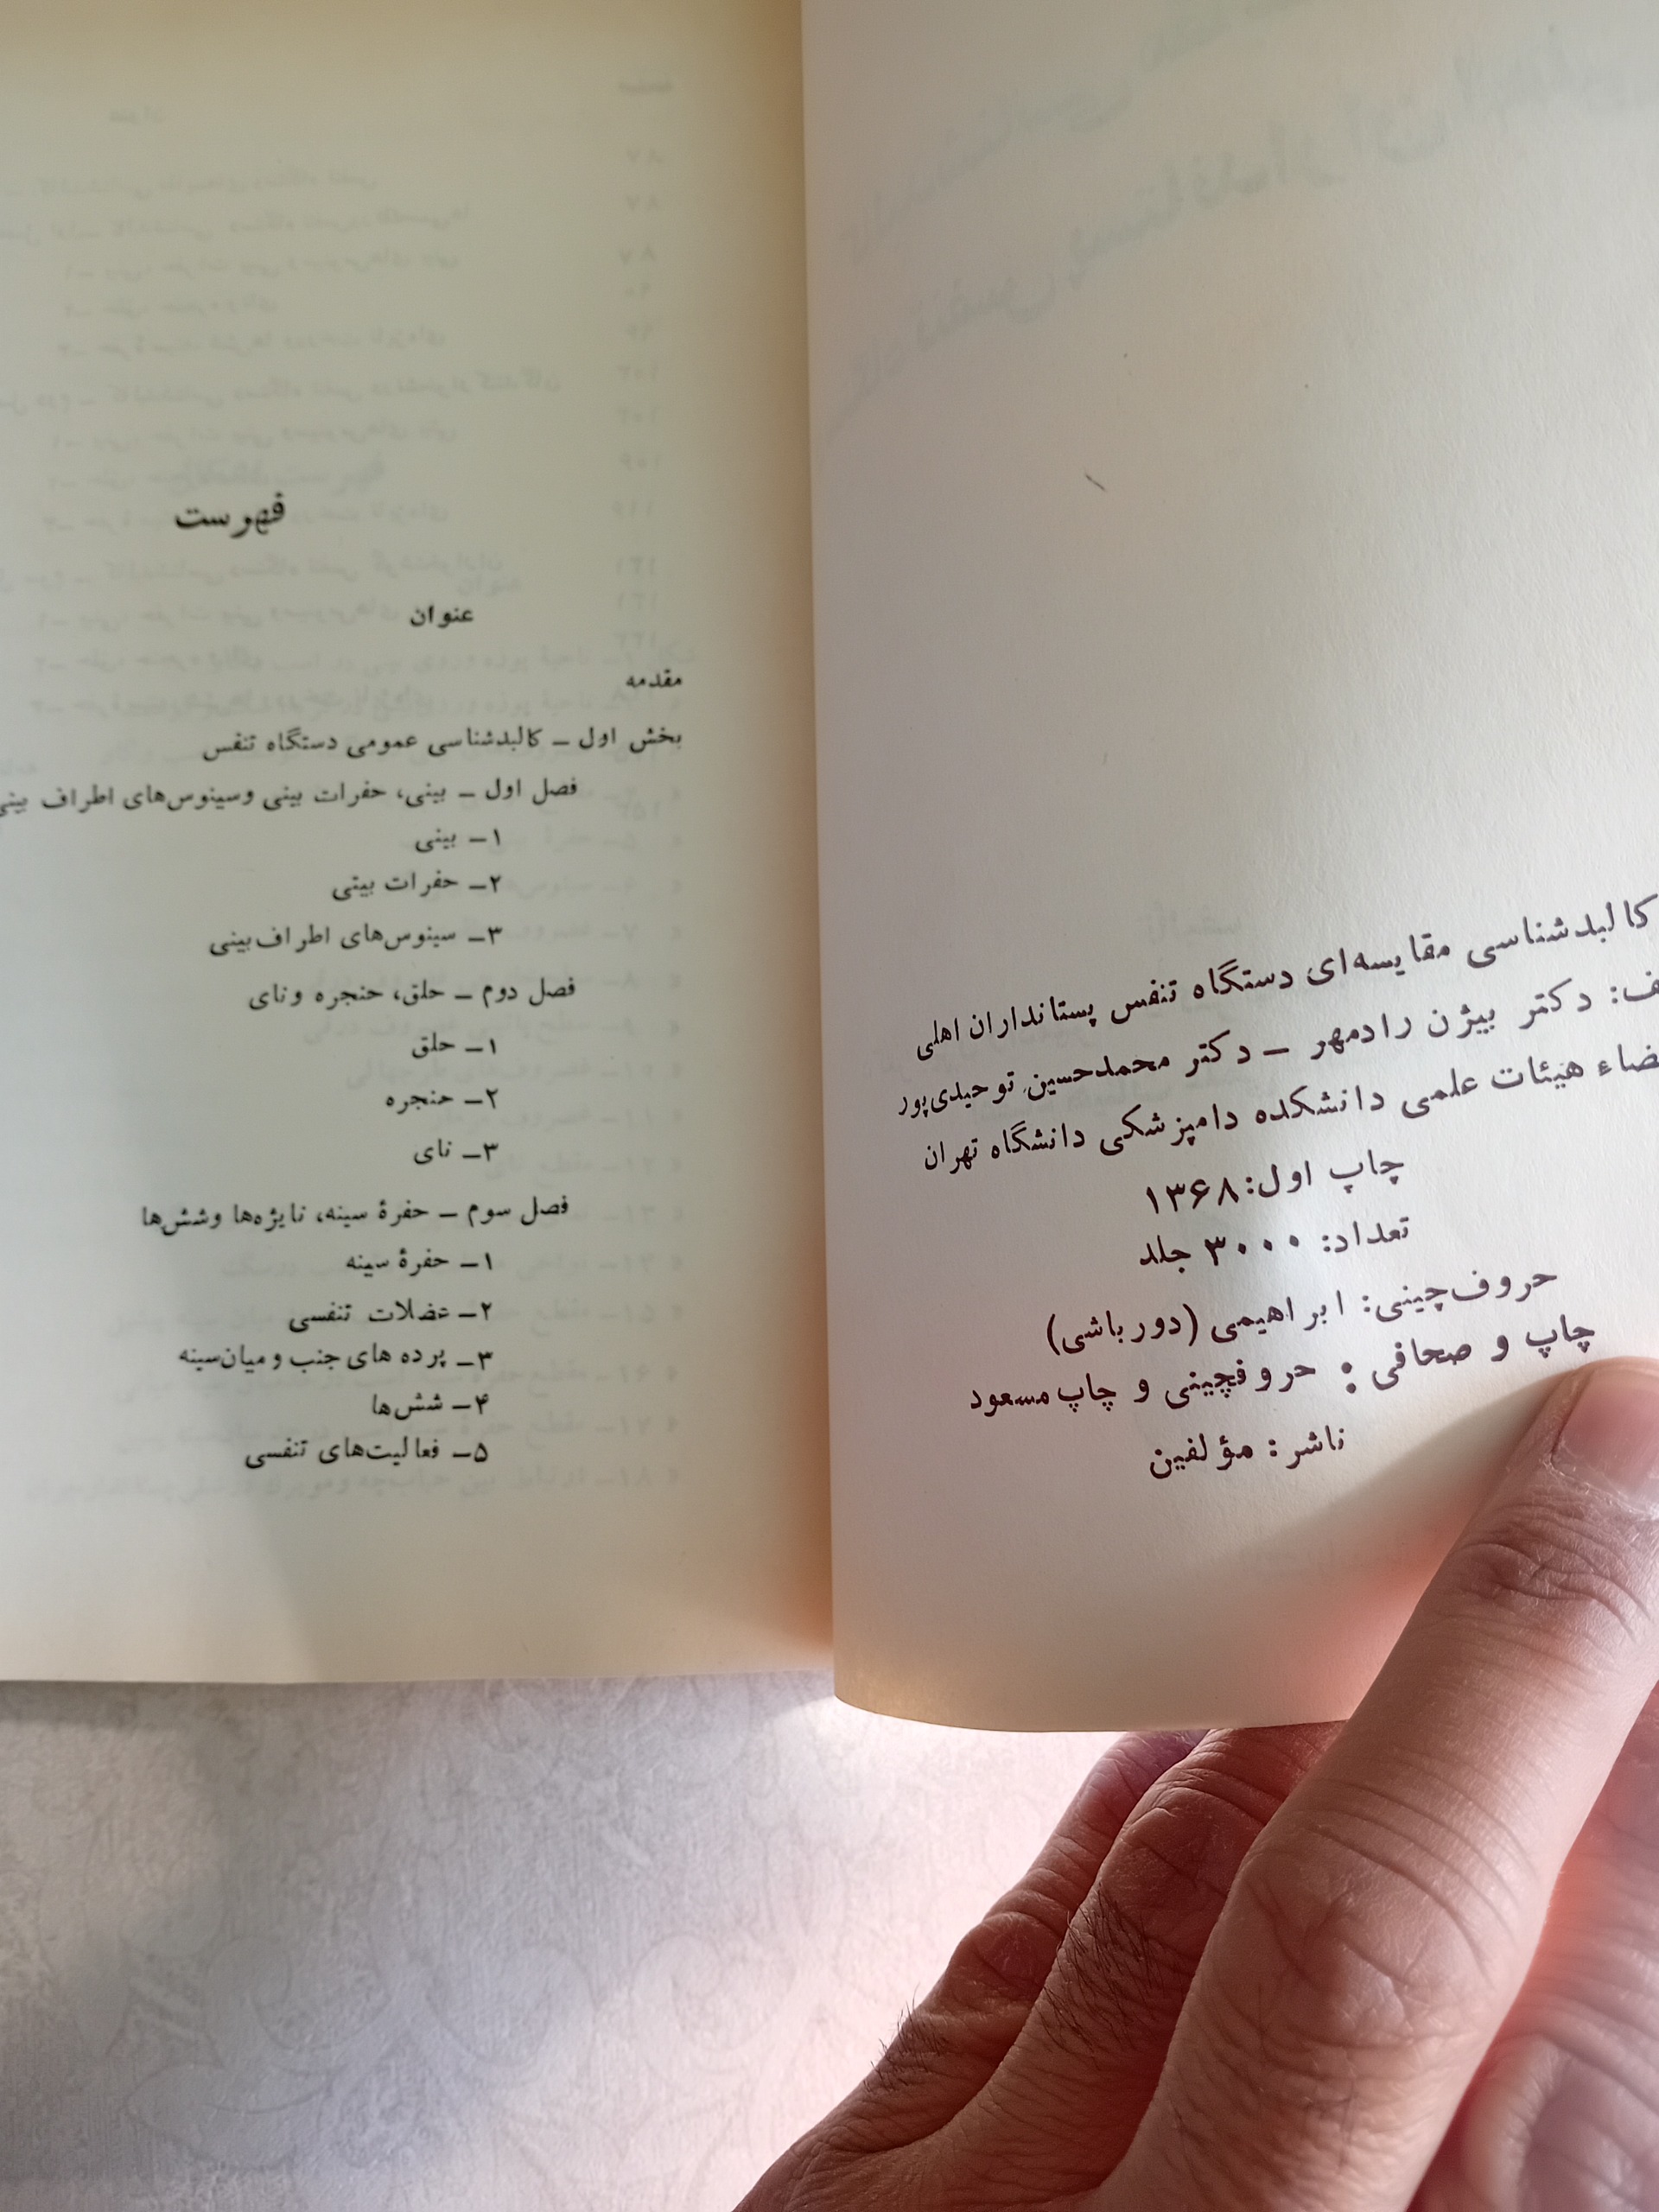 کالبدشناسی مقایسه‌ای دستگاه تنفس پستانداران اهلی
دکتر بیژن رادمهر – دکتر محمدحسین توحیدی‌پور
هیئات علمی دانشکده دامپزشکی دانشگاه تهران
چاپ اول: ۱۳۶۸
تعداد: ۳۰۰۰ جلد
حروف‌چینی: ابراهیمی (دورباشی)
چاپ و صحافی : حروفچینی و چاپ مسعود
ناشر : مؤلفین
فهرست
عنوان
مقدمه
بخش اول – کالبدشناسی عمومی دستگاه تنفس
فصل اول – بینی، حفرات بینی وسینوس‌های اطراف بینی
۱– بینی
۲– حفرات بیتی
۳– سینوس‌های اطراف‌بینی
فصل دوم – حلق، حنجره ونای
۱– حلق
۲– حنجره
۳– نای
فصل سوم – حفرۀ سینه، نایژه‌ها وشش‌ها
۱– حفرۀ سینه
۲– عضلات تنفسی
۳– پرده های جنب و میان‌سینه
۴– شش‌ها
۵– فعالیت‌های تنفسی